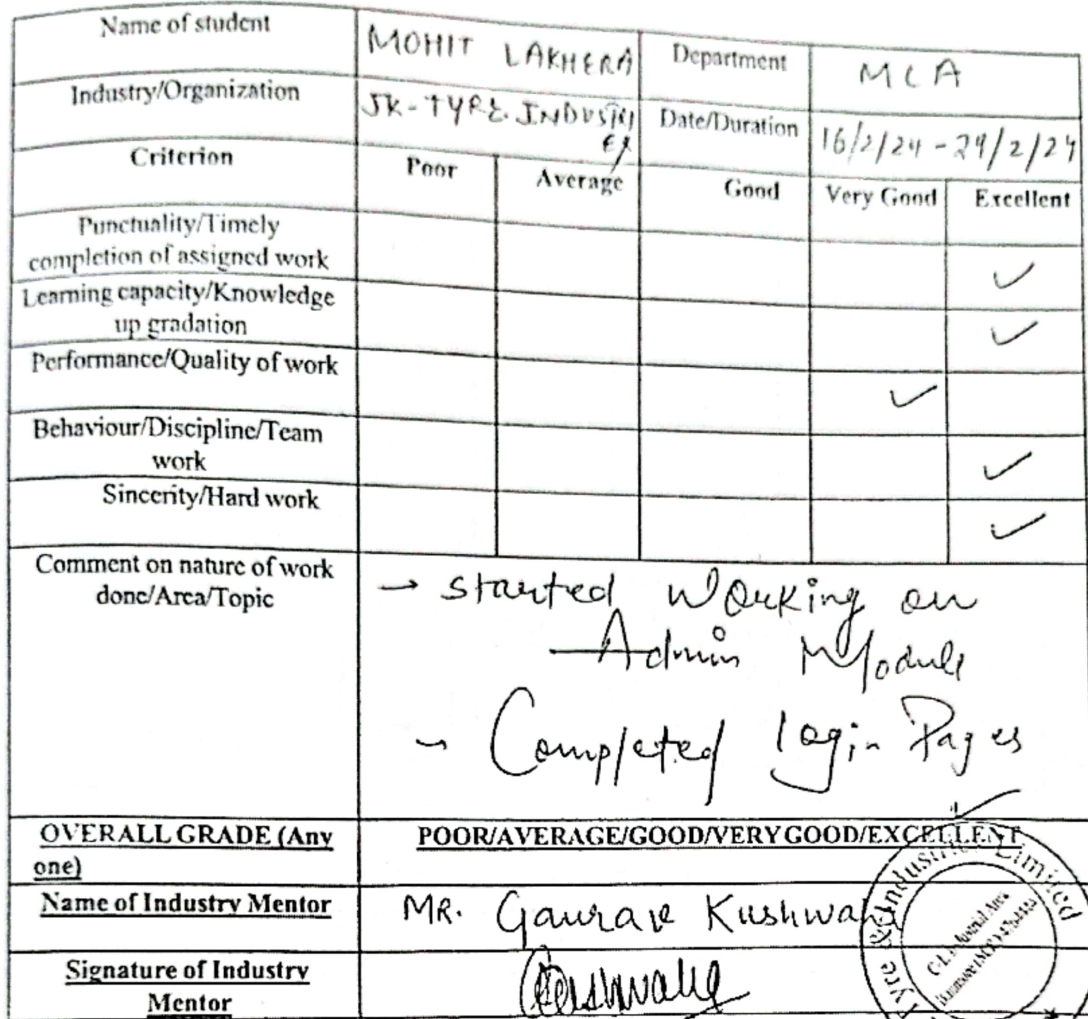 Name of student MOHIT LAKHERA Department MCA
Industry/Organization JK-TYRE. INDUSTRI Date/Duration 16/2/24 - 29/2/24
ES
Criterion Poor Average Good Very Good Excellent
Punctuality/Timely
completion of assigned work ✓
Learning capacity/Knowledge
up gradation ✓
Performance/Quality of work ✓
Behaviour/Discipline/Team
work ✓
Sincerity/Hard work ✓
Comment on nature of work
done/Area/Topic
→ started Working on
Admin Module
→ Completed login Pages
OVERALL GRADE (Any
one)
POOR/AVERAGE/GOOD/VERY GOOD/EXCELLENT ✓
Name of Industry Mentor MR. Gaurav Kushwah
Signature of Industry
Mentor
Kushwah
Tyre & Industries Limited